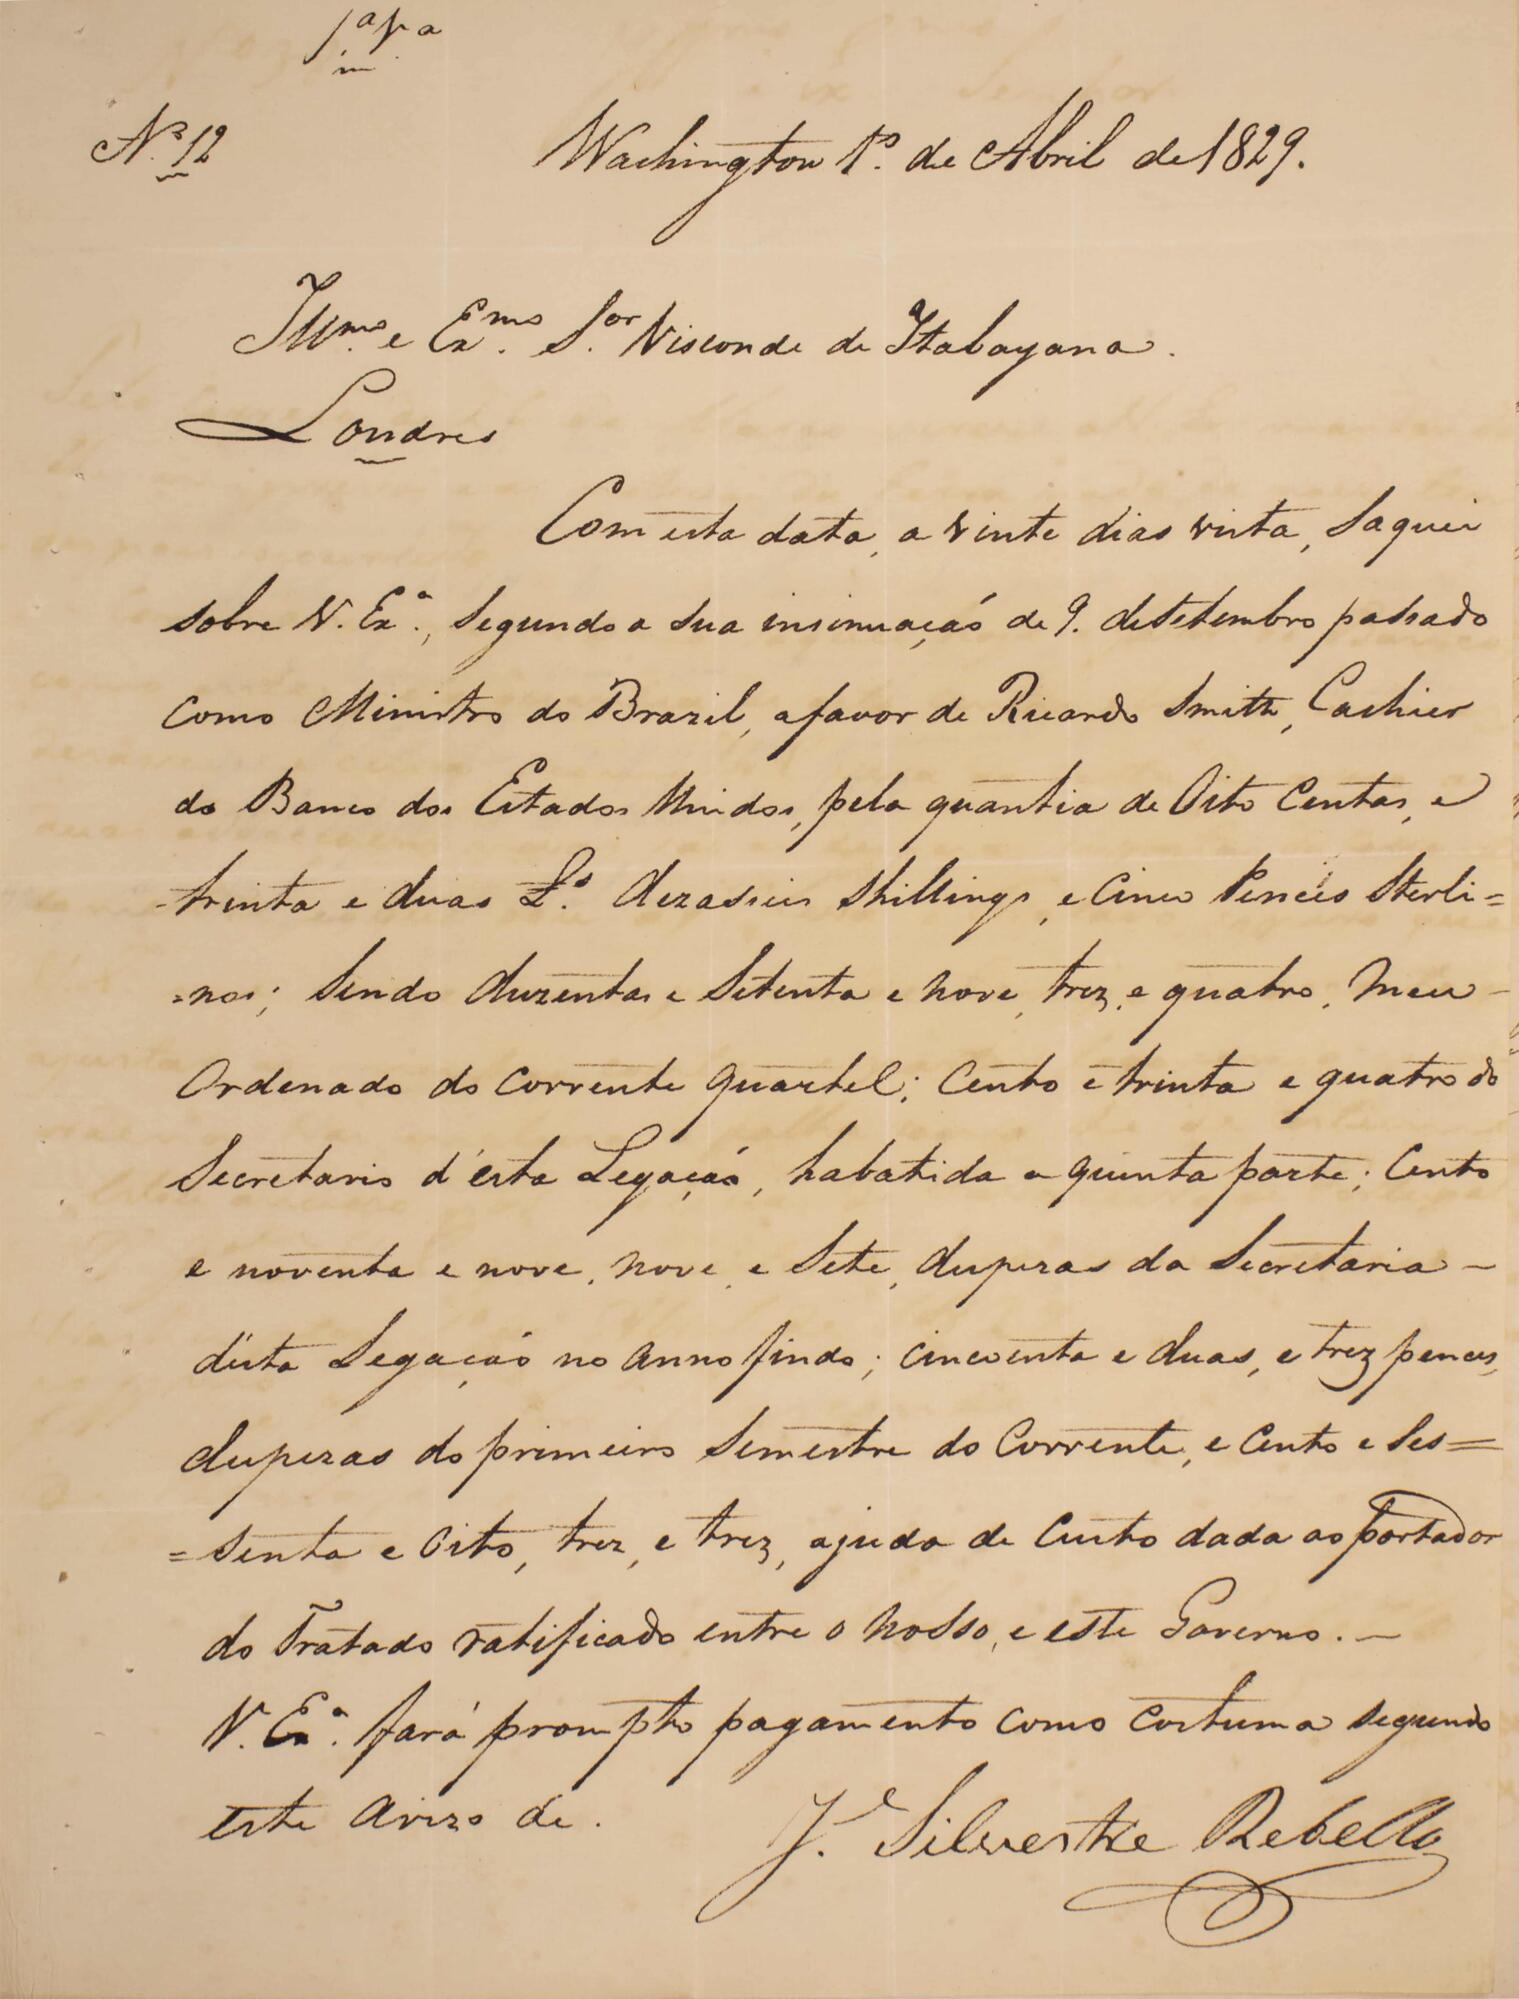 1ª Vª
Nº 12
Washington 1º. de Abril de 1829.
Illmº. e Exmº. Sor. Visconde de Itabayana.
Londres
Com esta data, a vinte dias vista, saquei
sobre V. Exª., segundo a sua insinuação de 9. de Setembro passado
como Ministro do Brazil, a favor de Ricardo Smith, Cashier
do Banco dos Estados Unidos, pela quantia de Oito Centas, e
trinta e duas £s. dezasseis Shillings, e cinco Pences Sterli=
=nos; sendo duzentas e Setenta e nove, trez, e quatro, meu
Ordenado do corrente quartel; cento e trinta e quatro do
Secretario d'esta Legação, habatida a quinta parte; Cento
e noventa e nove, nove, e Sete, dispezas da Secretaria
d'esta Legação no anno findo; cincoenta e duas, e trez pences,
dispezas do primeiro Semestre do Corrente, e Cento e Ses=
=senta e Oito, trez, e trez, ajuda de Custo dada ao Portador
do Tratado ratificado entre o nosso, e este Governo.
V. Exª. fará prompto pagamento como costuma segundo
este aviso de.
J.e Silvestre Rebello